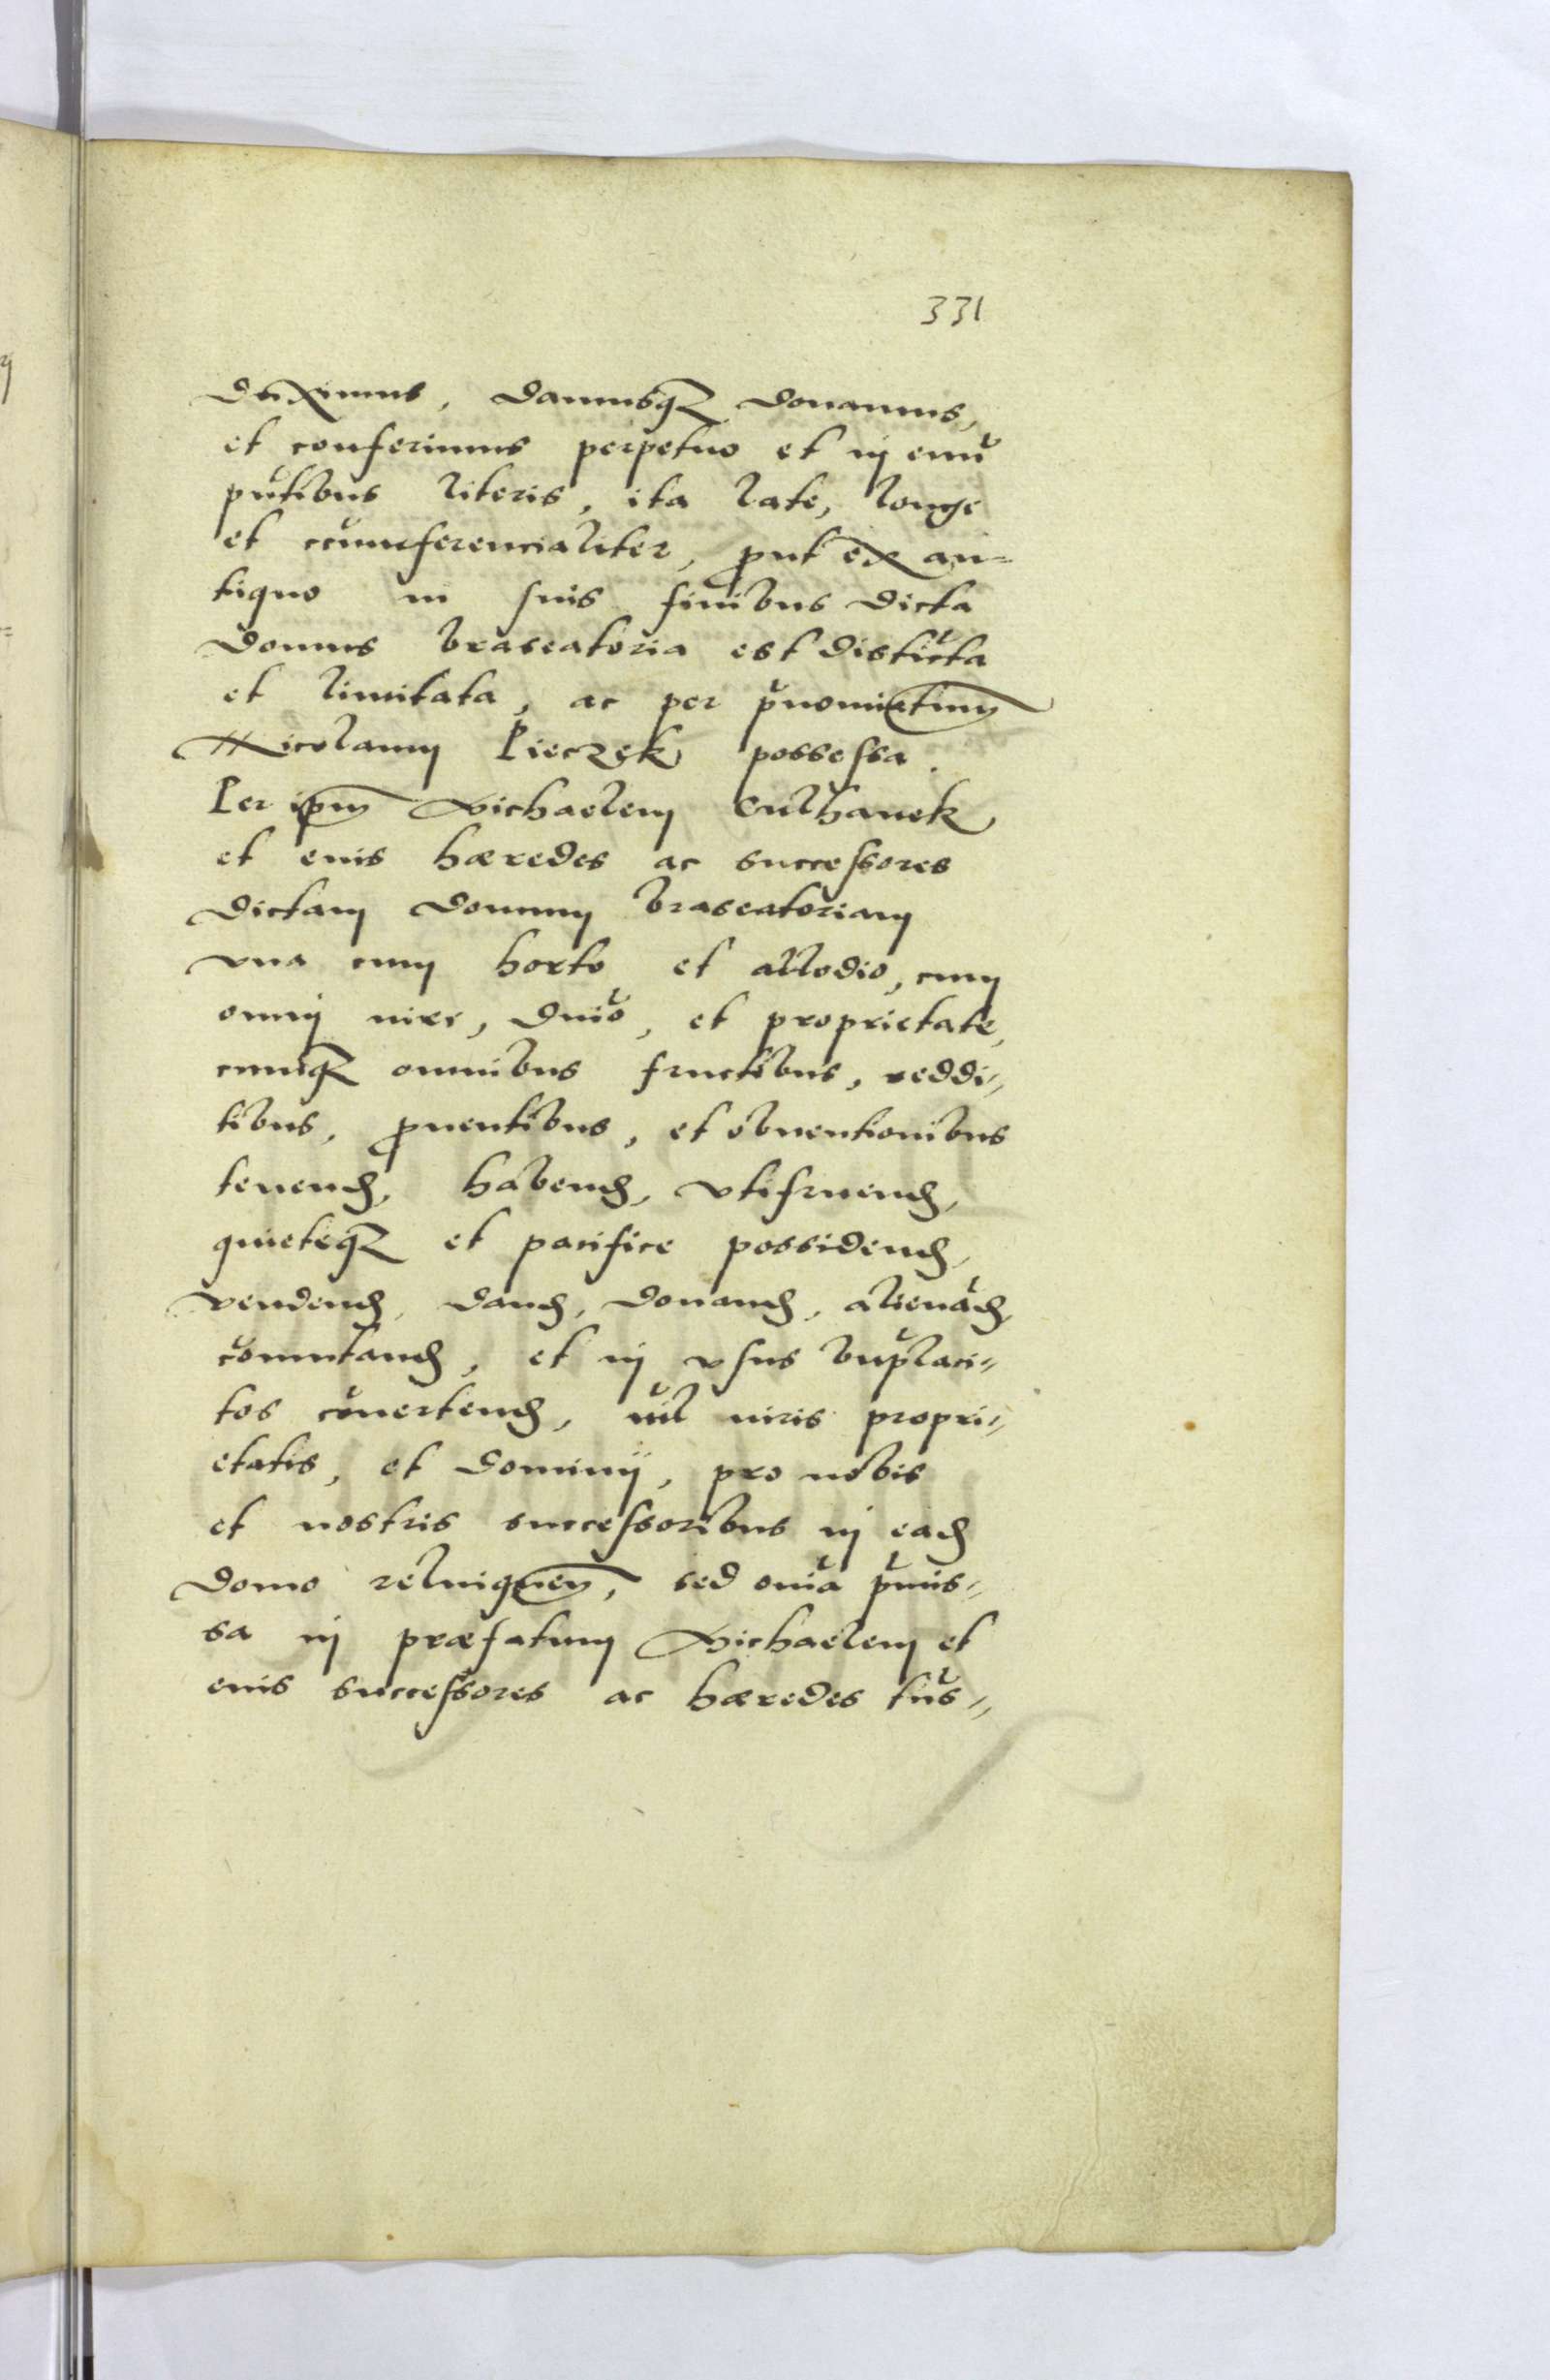 331
duximus, damusq₃ donamus,
et conferimus perpetuo et in eum
pn̄tibus literis, ita late, longe
et circumferencialiter, prout ex an=
tiquo in suis finibus dicta
domus braseatoria est distīcta
et limitata, ac per p̄nominatum
Nicolaum Pieczek possessa.
Per ip̄m Michaelem Culhanek
et eius hæredes ac successores
dictam domum braseatoriam
vna cum horto et allodio, cum
omni iure, dn̄io, et proprietate,
cumq₃ omnibus fructibus, reddi=
tibus, prouentibus, et obuentionibus
tenend, habend, vtifruend,
quieteq₃ et pacifice possidend,
vendend, dand, donand, alienād,
cōmutand, et in vsus bn̄placi=
tos cōuertend, nil iuris propri=
etatis, et dominij, pro nobis
et nostris successoribus in ead
domo relinquen, sed oīa p̄mis=
sa in præfatum Michaelem et
eius successores ac hæredes trn̄s=